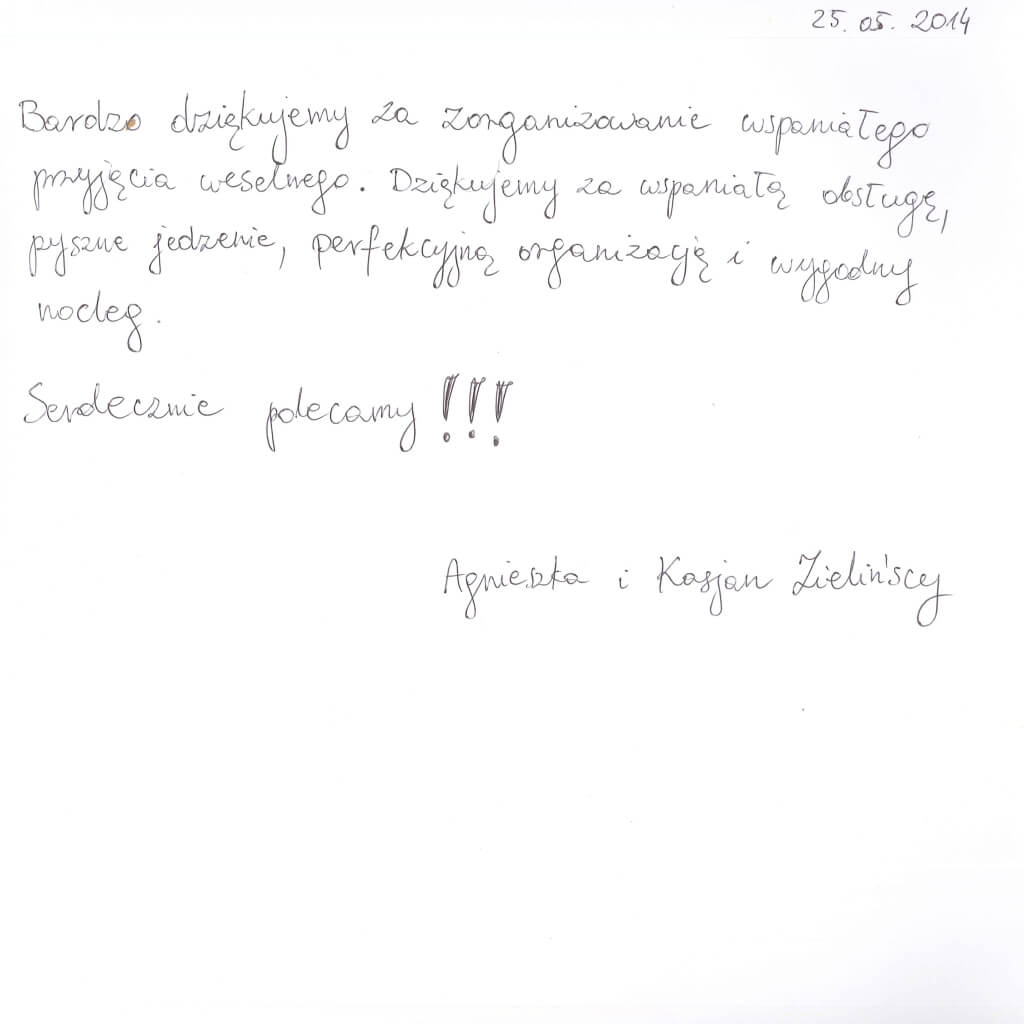 25.05.2014
Bardzo dziękujemy za zorganizowanie wspaniałego
przyjęcia weselnego. Dziękujemy za wspaniałą obsługę,
pyszne jedzenie, perfekcyjną organizację i wygodny
nocleg.
Serdecznie polecamy!!!
Agnieszka i Kasjan Zielińscy